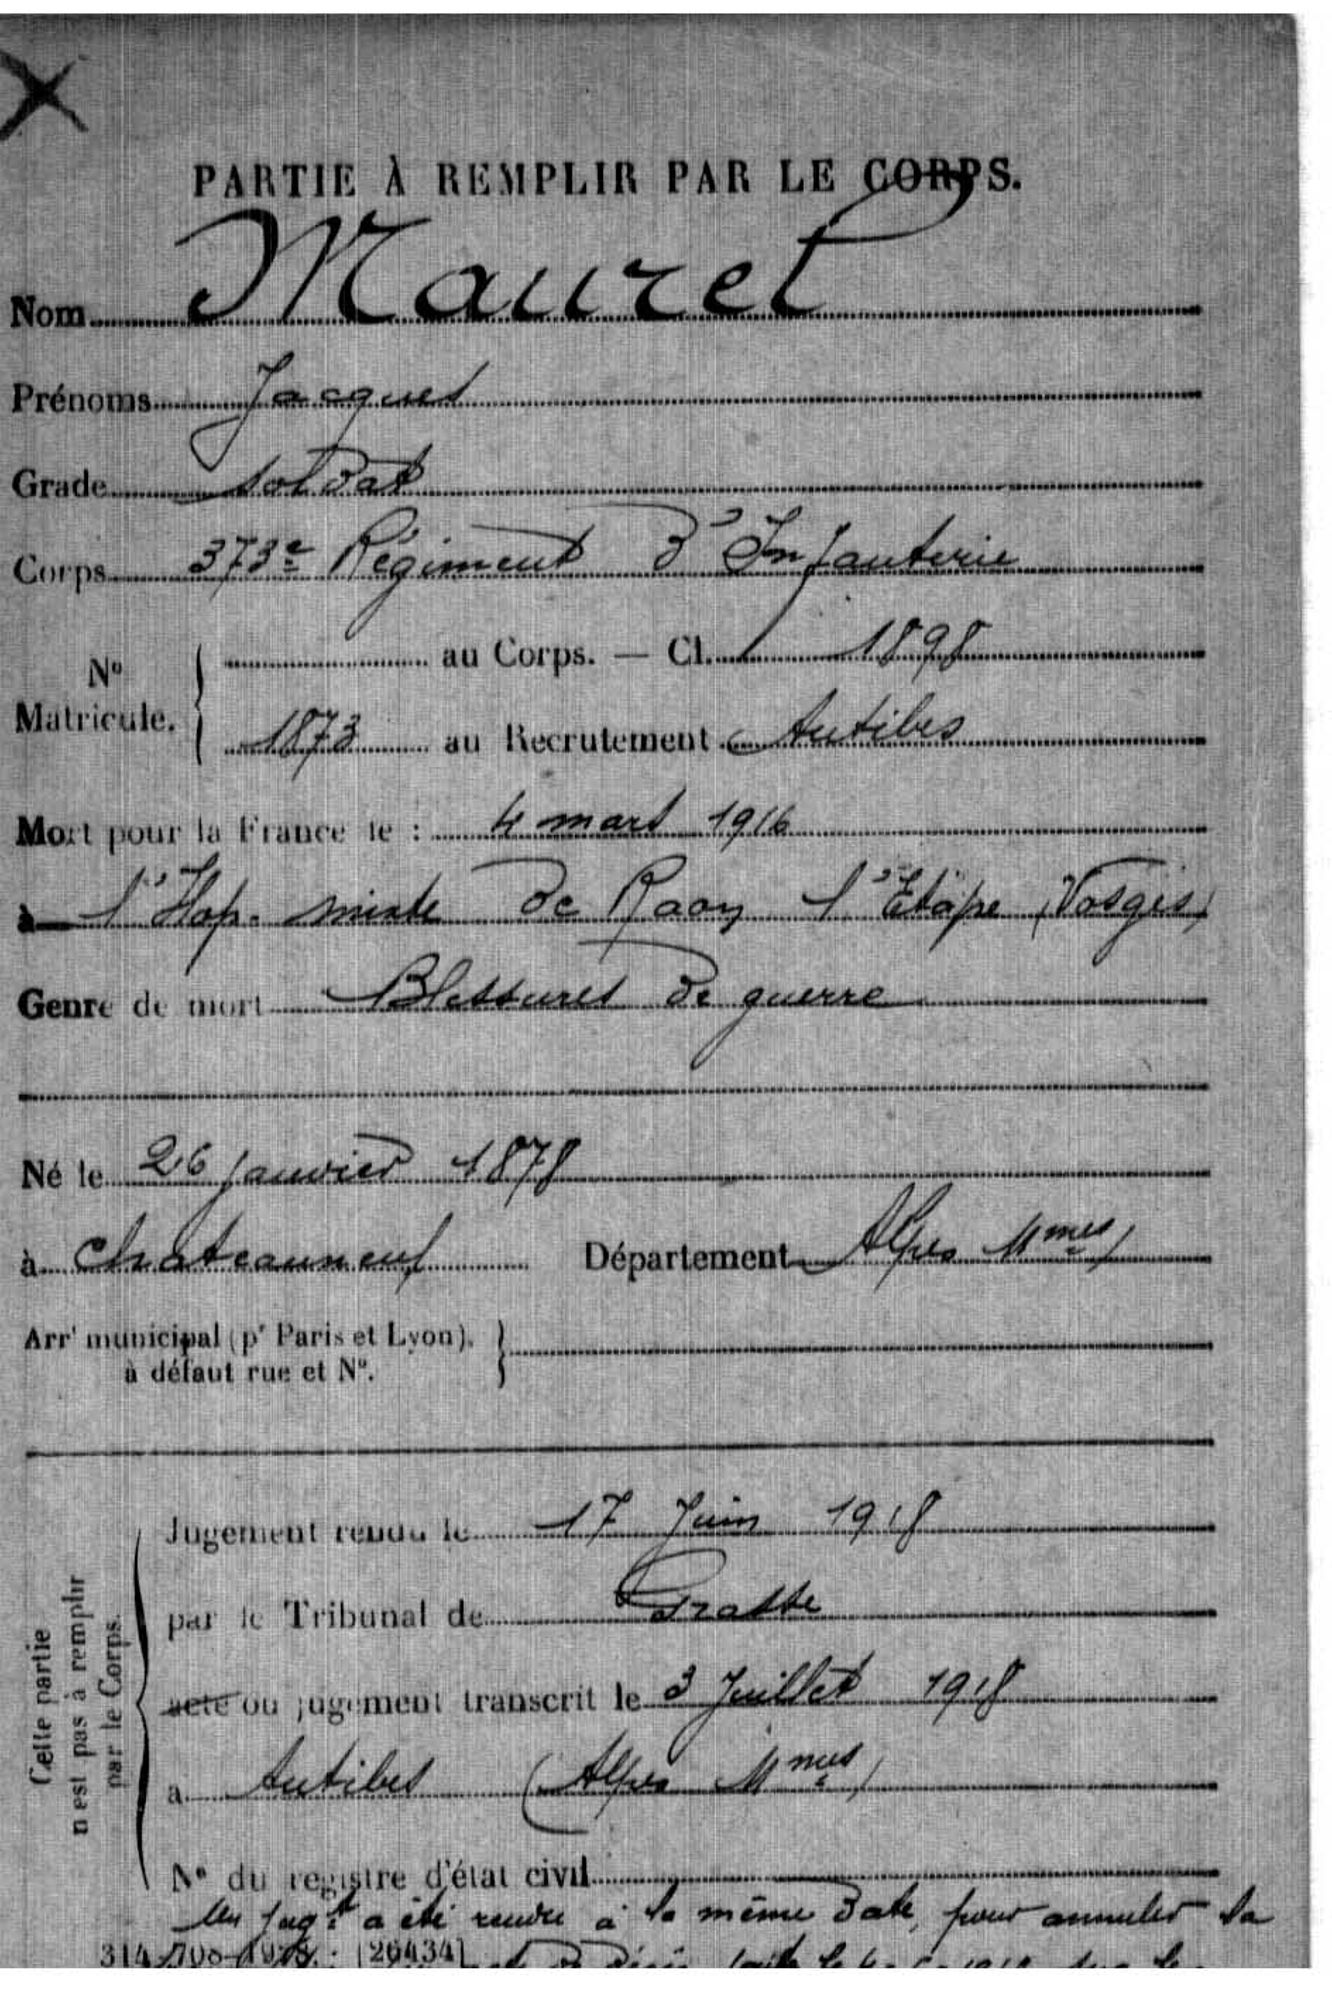 PARTIE À REMPLIR PAR LE CORPS.
Nom Mauret
Prénoms Jacques
Grade soldat
Corps 373e Régiment d'Infanterie
No Matricule. { au Corps. — Cl. 1898
1873 au Recrutement Antibes
Mort pour la France le : 4 mars 1916
à l'Hop. mixte de Raon l'Etape (Vosges)
Genre de mort Blessures de guerre
Né le 26 janvier 1878
à Chateauneuf Département Alpes Mmes
Arrt municipal (pr Paris et Lyon), à défaut rue et No. }
Cette partie n'est pas à remplir par le Corps.
Jugement rendu le 17 Juin 1918
par le Tribunal de Grasse
acte ou jugement transcrit le 3 Juillet 1918
a Antibes (Alpes Mmes)
No du registre d'état civil
Un jugt a été rendu à la même date, pour annuler la
314-708-1922. [26434]